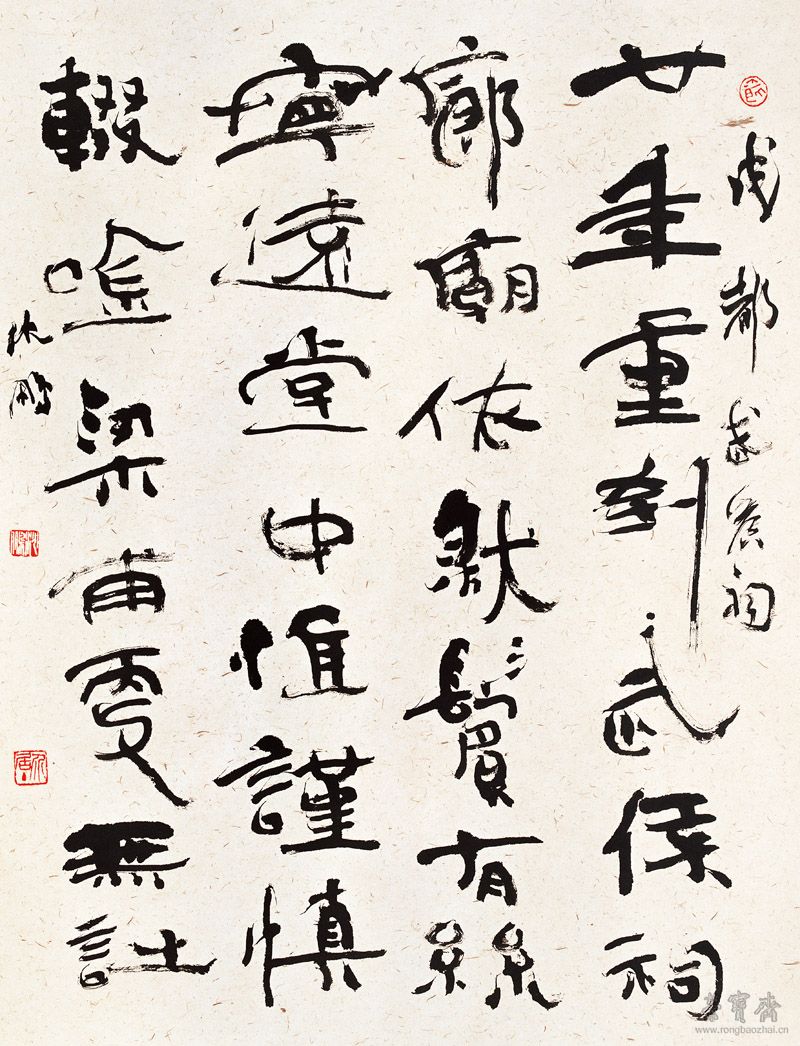 成都武侯祠
廿年重到武侯祠
廊廟依然鬢有絲
寧遠堂中惟謹慎
輟唫梁甫更無詩
沈鵬
榮寶齋
www.rongbaozhai.cn